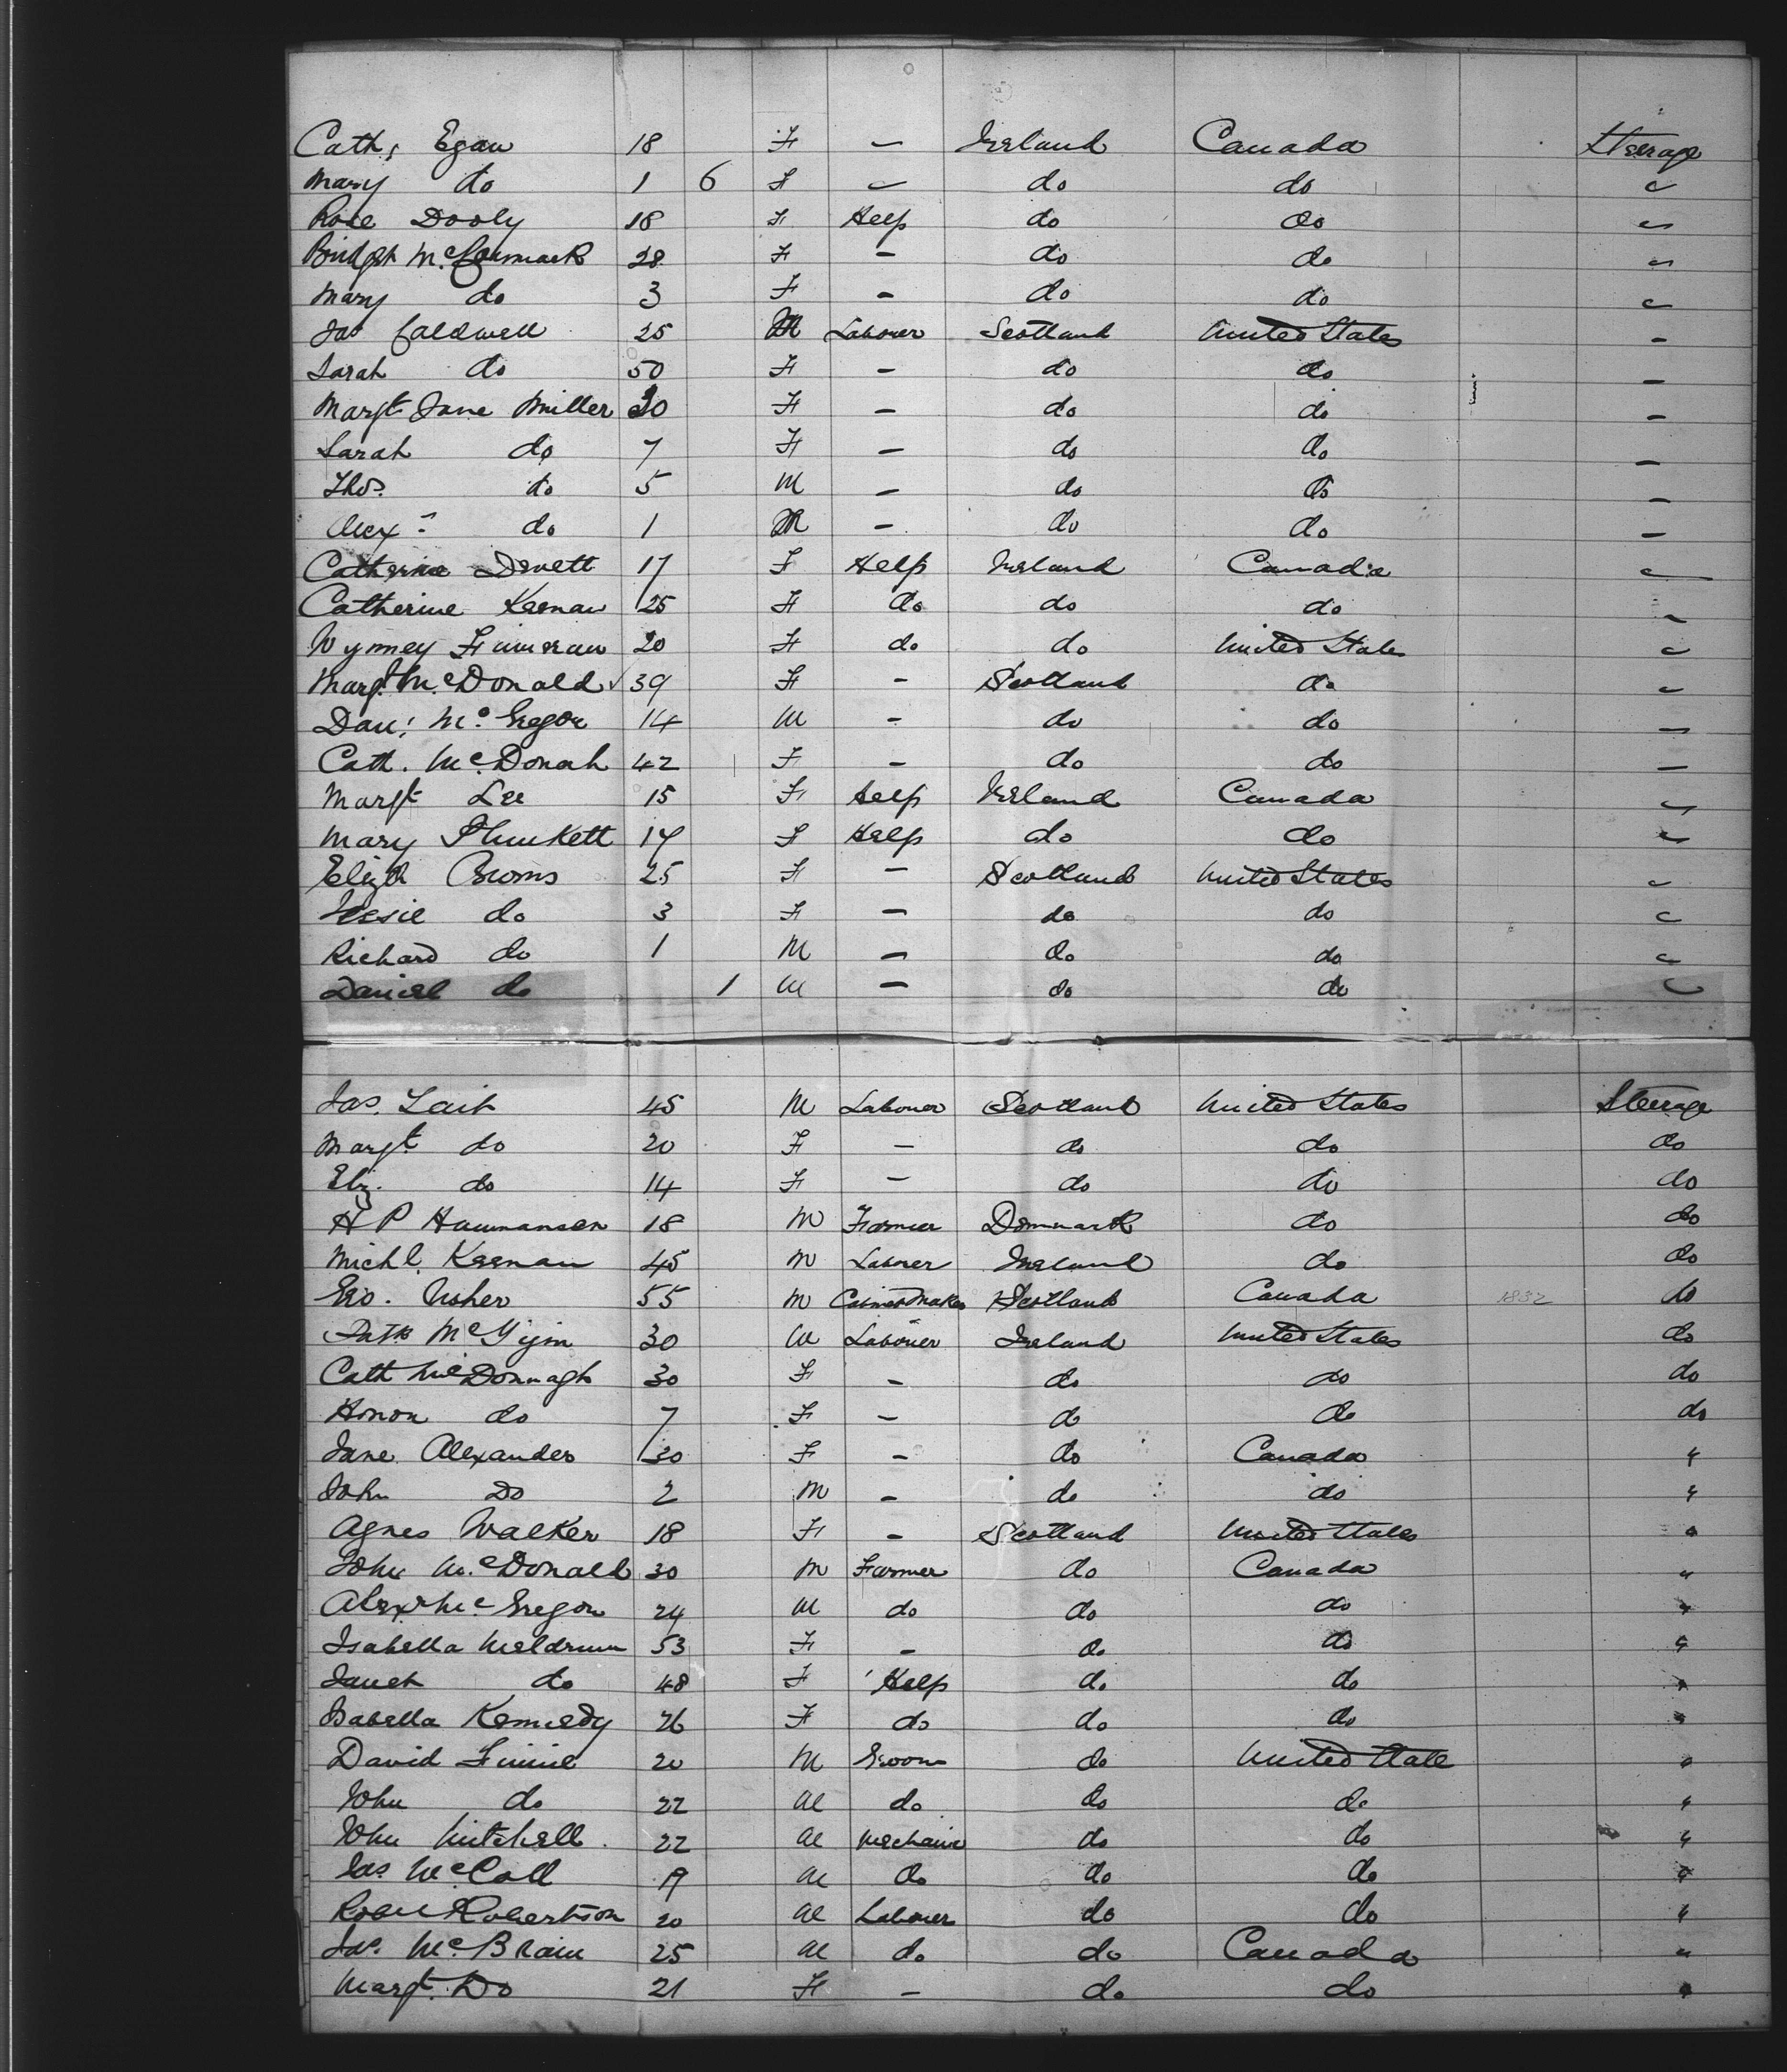 Cath, Egan 18 F — Ireland Canada Steerage
Mary do 1 6 F — do do "
Rose Dooly 18 F Help do do "
Bridget McCormack 28 F — do do "
Mary do 3 F — do do "
Jas Caldwell 25 M Labourer Scotland United States —
Sarah do 50 F — do do —
Margt Jane Miller 30 F — do do —
Sarah do 7 F — do do —
Thos. do 5 M — do do —
Alexr do 1 M — do do —
Catherine Devett 17 F Help Ireland Canada "
Catherine Keenan 25 F do do do "
Wynney Finneran 20 F do do United States "
Margt. McDonald 39 F - Scotland do "
Danl McGregor 14 M - do do —
Cath. McDonah 42 F — do do —
Margt Lee 15 F Help Ireland Canada "
Mary Plunkett 14 F Help do do "
Elizth 25 F — Scotland United States "
Jessie do 3 F — do do "
Richard do 1 M — do do "
Daniel do 1 M — do do "
Jas. Tait 45 M Labourer Scotland United States Steerage
Margt. do 20 F — do do do
Eliz. do 14 F — do do do
H P Hammansen 18 M Farmer Denmark do do
Michl. Keenan 45 M Laborer Ireland do do
Geo. Usher 55 M Cabinet Maker Scotland Canada 1832 do
Patk McGinn 30 M Labourer Ireland United States do
Cath McDonnagh 30 F — do do do
Honor do 7 F — do do do
Jane Alexander 30 F — do Canada "
John Do 2 M — do do "
Agnes Walker 18 F — Scotland United States "
John McDonald 30 M Farmer do Canada "
Alexr McGregor 24 M do do do "
Isabella Meldrum 53 F — do do "
Janet do 48 F Help do do "
Isabella Kennedy 26 F do do do "
David Finnie 20 M Groom do United State "
John do 22 M do do do "
John Mitchell 22 M Mechanic do do "
Jas McCall 19 M do do do "
Robert Robertson 20 M Labourer do do "
Jas. McBrain 25 M do do Canada "
Margt. Do 21 F — do do "